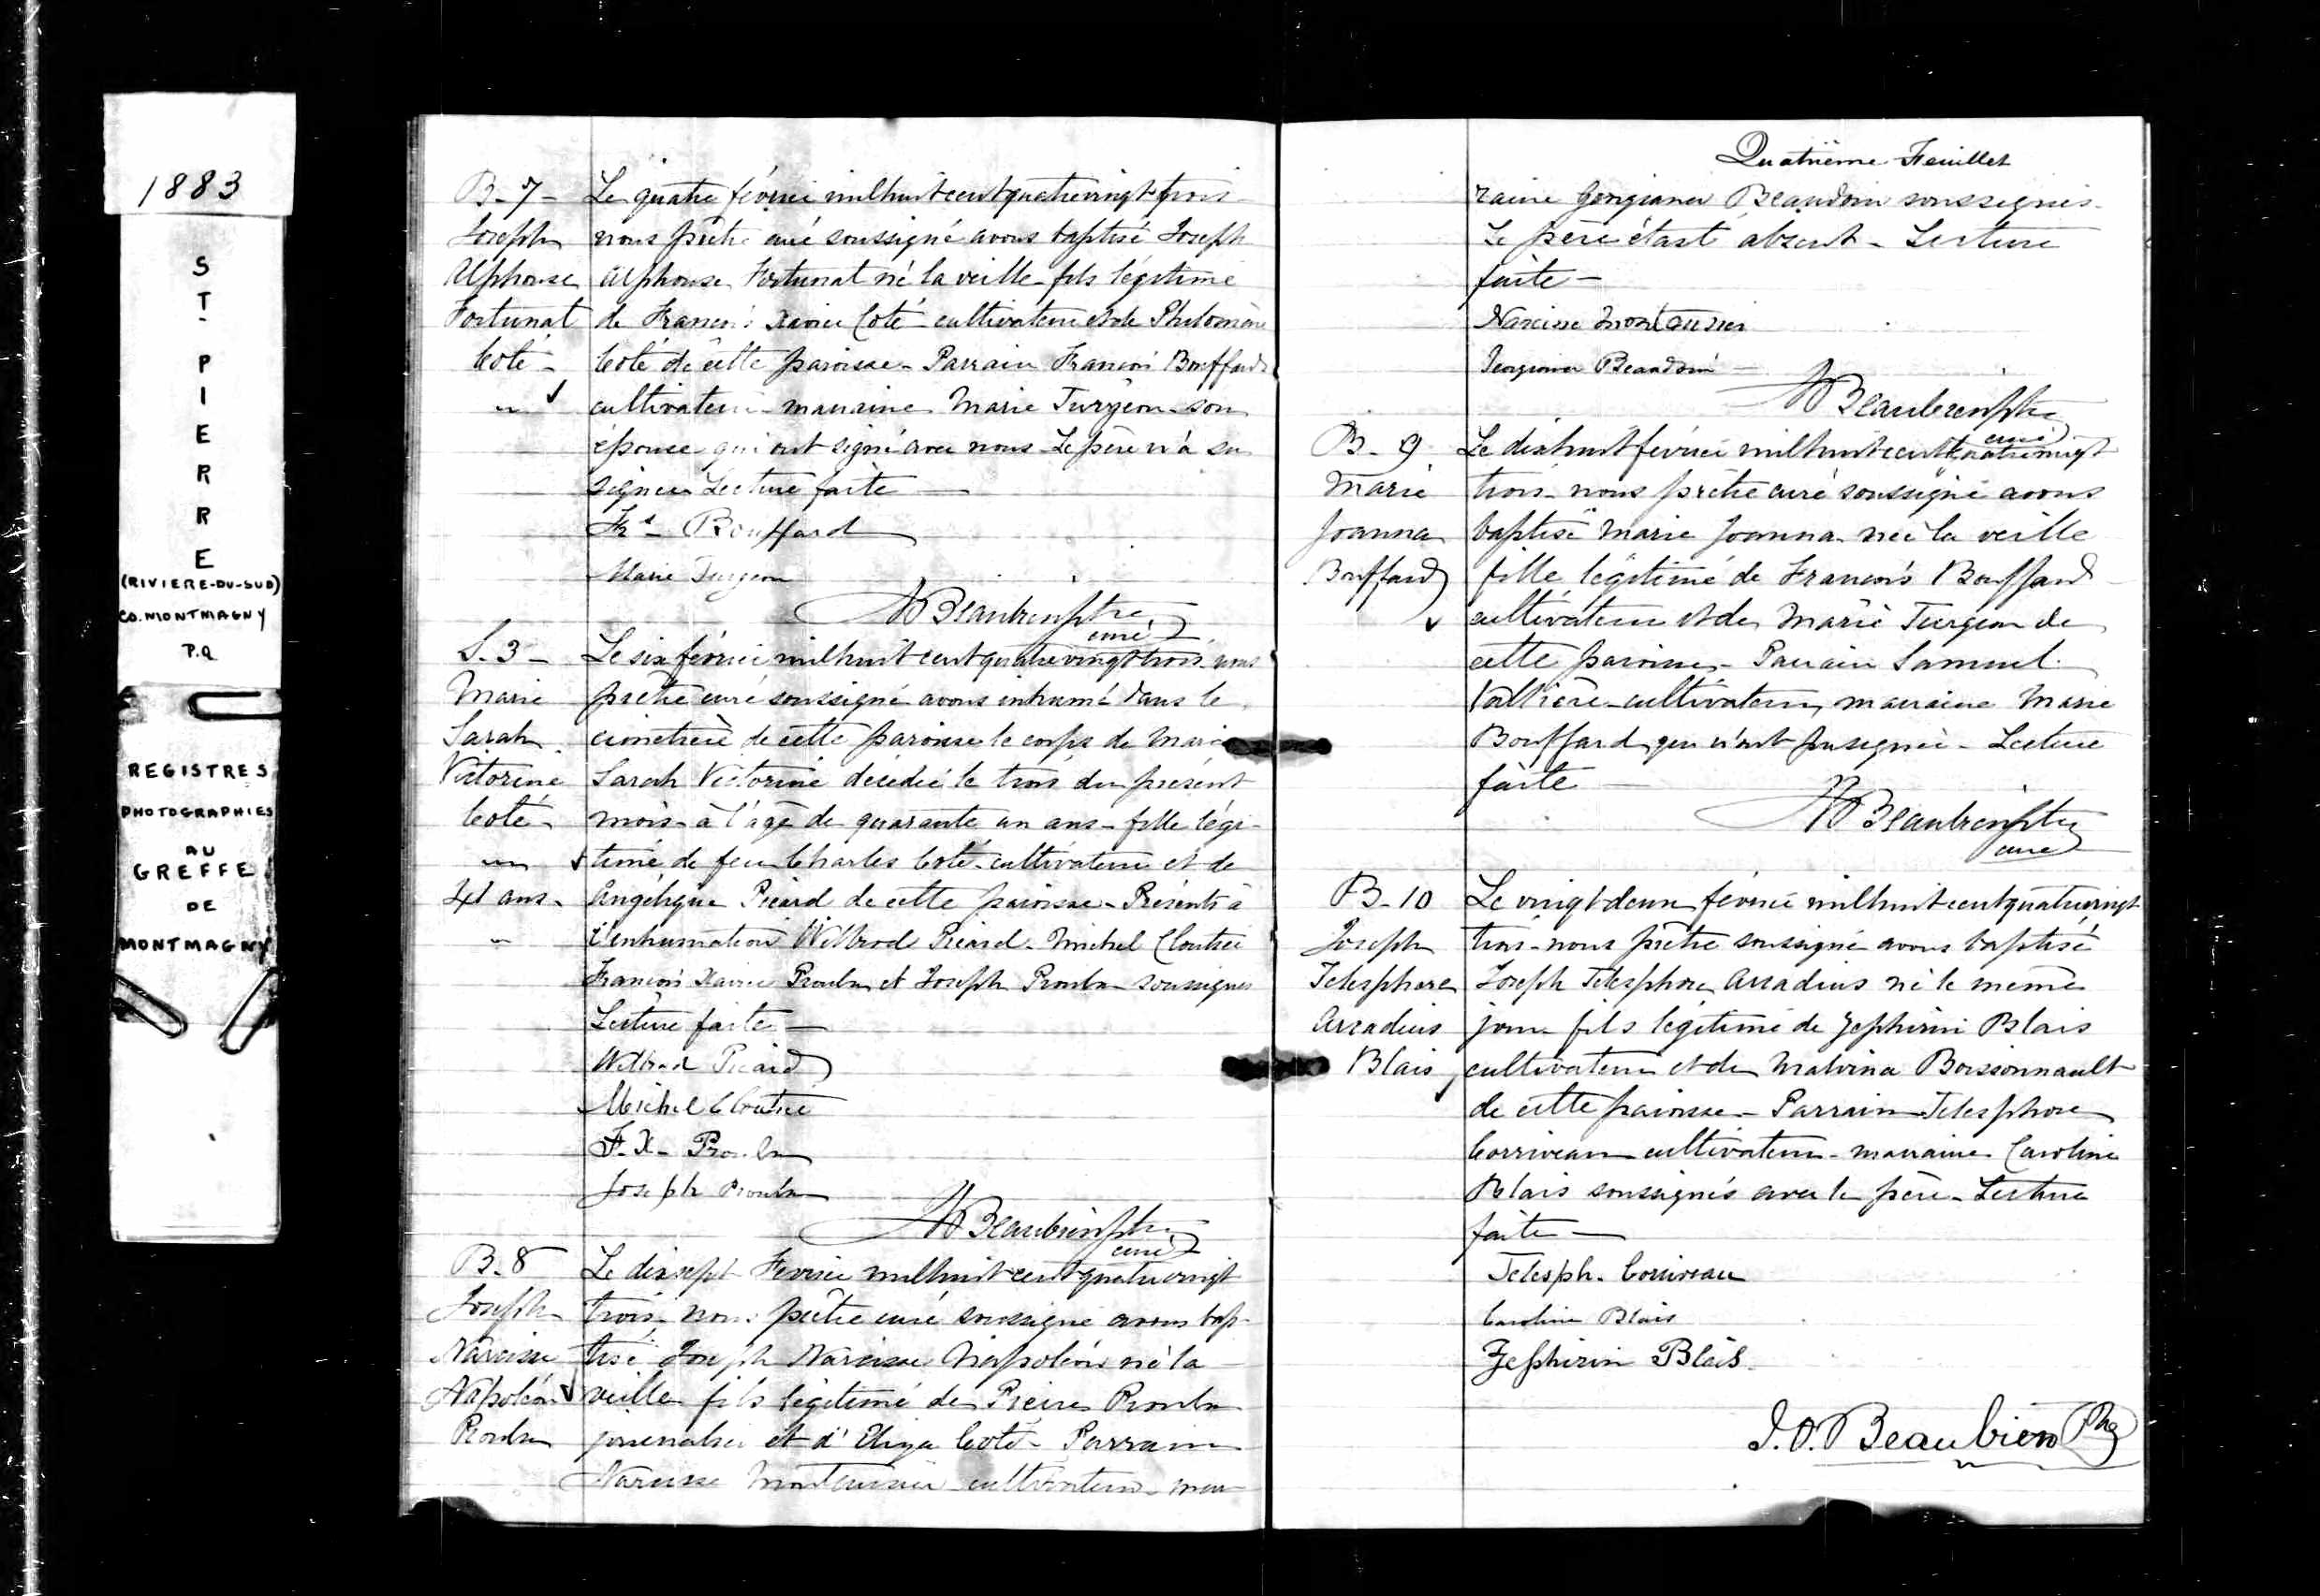 1883
ST-PIERRE
(RIVIERE-DU-SUD)
CO. MONTMAGNY
P.Q
REGISTRES
PHOTOGRAPHIES
AU
GREFFE
DE
MONTMAGNY
B-7-
Joseph
Alphonse
Fortunat
Coté-
Le quatre février mil huit cent quatre vingt trois
nous prêtre curé soussigné avons baptisé Joseph
Alphonse Fortunat né la veille fils légitime
de François Xavier Coté cultivateur et de Philomène
Coté de cette paroisse - Parrain François Bouffard
cultivateur - marraine Marie Turgeon son
épouse qui ont signé avec nous - Le père n'a su
signer Lecture faite -
Frs Bouffard
Marie Turgeon
Beaubien ptre
curé
S-3-
Marie
Sarah
Victorine
Coté-
41 ans-
Le six février mil huit cent quatre vingt trois nous
prêtre curé soussigné avons inhumé dans le
cimetière de cette paroisse le corps de Marie
Sarah Victorine décédée le trois du présent
mois - à l'âge de quarante un ans - fille légi-
time de feu Charles Coté cultivateur et de
Angélique Picard de cette paroisse - Présents à
l'inhumation Wilbrod Picard - Michel Cloutier
François Xavier Proulx et Joseph Proulx soussignés
Lecture faite -
Wilbrod Picard
Michel Cloutier
F-X- Proulx
Joseph Proulx
Beaubien ptre
curé
B-8
Joseph
Narcisse
Napoléon
Proulx
Le dix sept Fevrier mil huit cent quatre vingt
trois nous prêtre curé soussigné avons bap-
tisé Joseph Narcisse Napoléon né la
veille fils légitime de Pierre Proulx
journalier et d'Eliza Coté - Parrain
Narcisse Montminier cultivateur - mar
Quatrième Feuillet
raine Georgianna Beaudoin soussignés-
Le père étant absent - Lecture
faite -
Narcisse
Beaudoin
Beaubien ptre
curé
B-9
Marie
Joanna
Bouffard
Le dix huit février mil huit cent quatre vingt
trois - nous prêtre curé soussigné avons
baptisé Marie Joanna née la veille
fille légitime de François Bouffard
cultivateur et de Marie Turgeon de
cette paroisse - Parrain Samuel
Vallière - cultivateur, marraine Marie
Bouffard qui n'ont pu signer - Lecture
faite
Beaubien ptre
curé
B-10
Joseph
Telesphore
Arcadius
Blais
Le vingt deux février mil huit cent quatre vingt
trois - nous prêtre soussigné avons baptisé
Joseph Telesphore Arcadius né le même
jour fils légitime de Zephirin Blais
cultivateur et de Malvina Boissonnault
de cette paroisse - Parrain Telesphore
Corriveau cultivateur - marraine Caroline
Blais soussignés avec le père - Lecture
faite -
Telesph. Corriveau
Caroline Blais
Zephirin Blais.
J.O. Beaubien Ptre